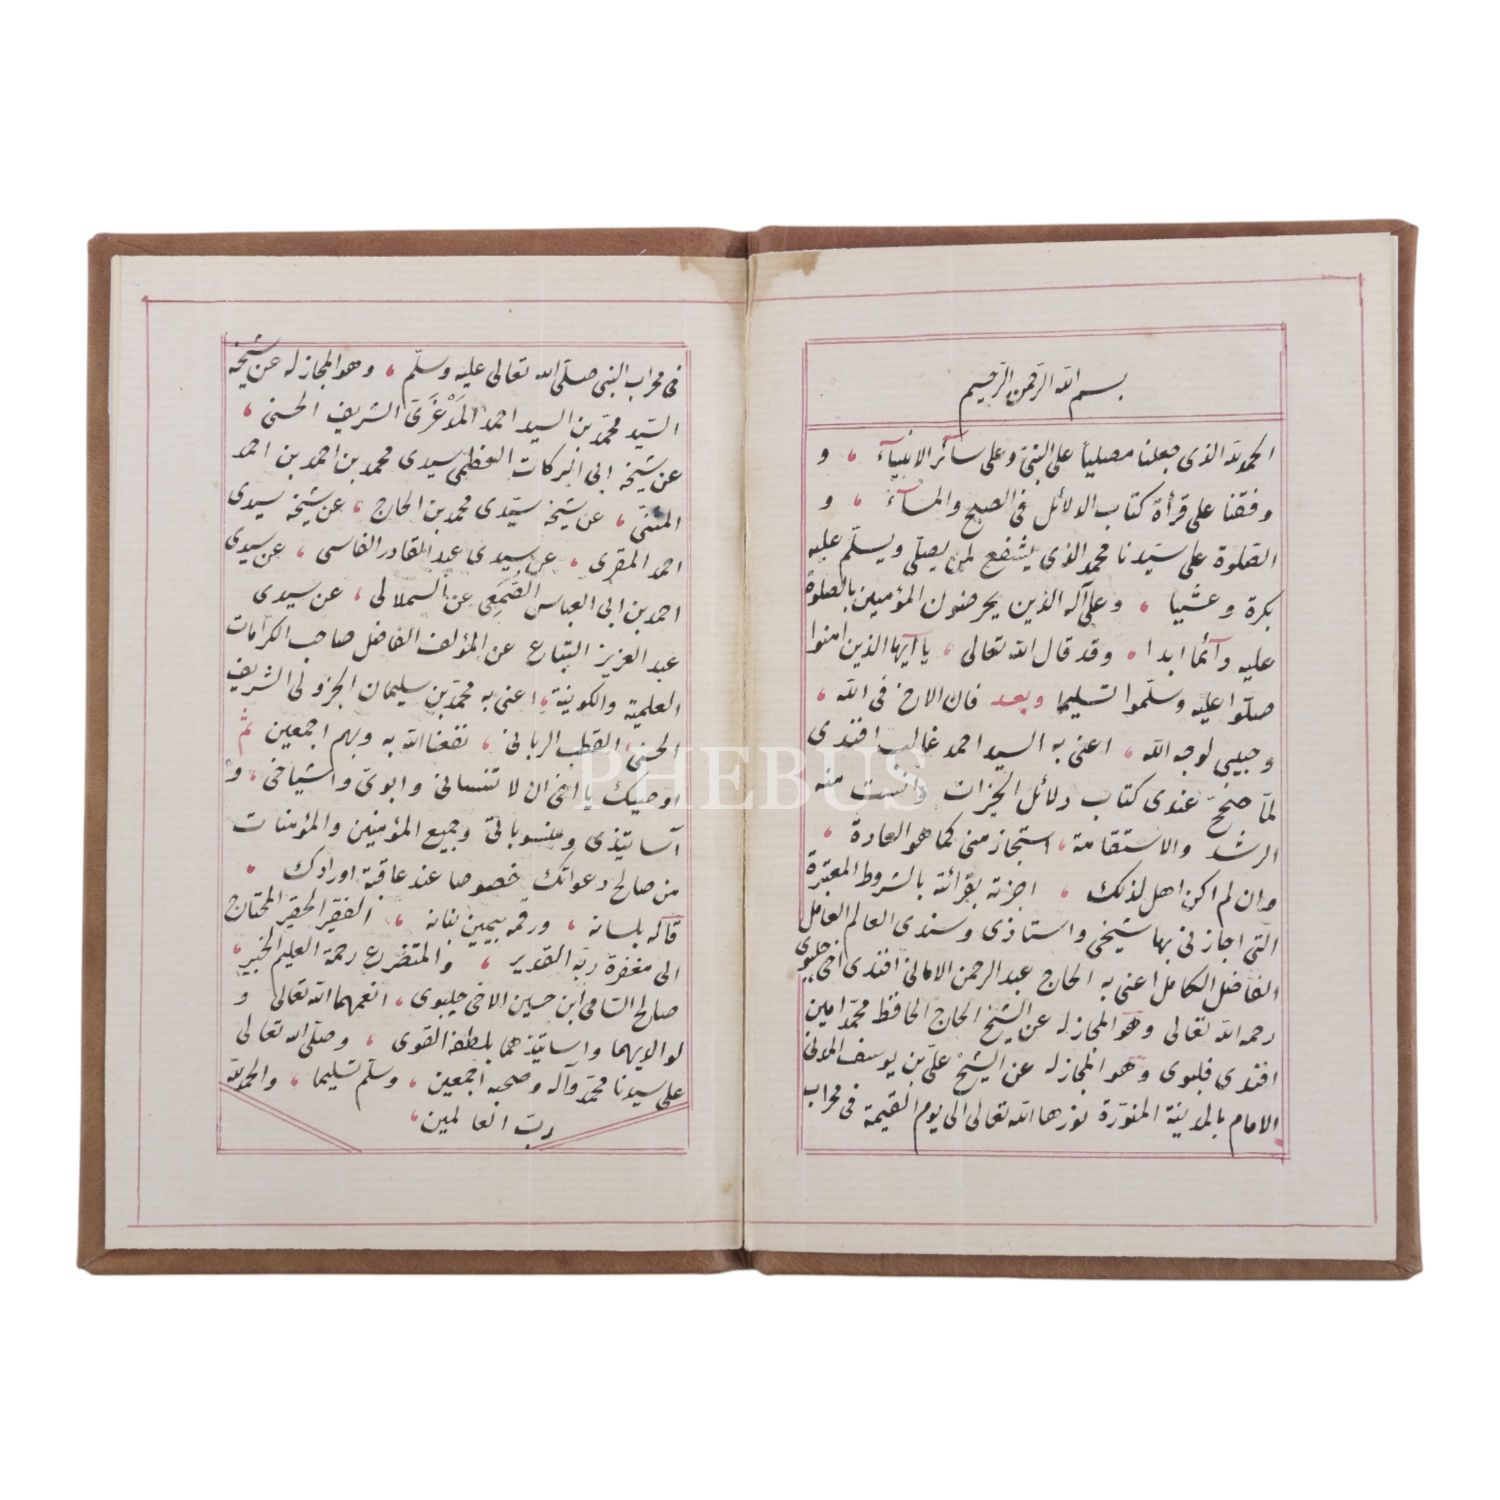 بسم الله الرحمن الرحيم
الحمد لله الذى جعلنا مصليا على النبى وعلى سآئر الانبيآء ، و
وفقنا على قرأة كتاب الدلائل فى الصبح والمسآء ، و
الصلوة على سيدنا محمد الذى يشفع لمن يصلى ويسلم عليه
بكرة وعشيا ، وعلى آله الذين يحرضون المؤمنين بالصلوة
عليه دآئما ابدا ، وقد قال الله تعالى ، يا آيها الذين امنوا
صلوا عليه وسلموا تسليما وبعد فان الاخ فى الله ،
وحبيبى لوجه الله ، اعنى به السيد احمد غالب افندى
لما صحح عندى كتاب دلائل الخيرات وانست منه
الرشد والاستقامة ، استجاز منى كما هو العادة ،
وان لم اكن اهل لذلك ، اجزته بقرائته بالشروط المعتبرة
التى اجازنى بها شيخى واستاذى وسندى العالم العامل
الفاضل الكامل اعنى به الحاج عبد الرحمن الامانى افندى اخى چلبوى
رحمه الله تعالى وهو المجاز له عن الشيخ الحاج الحافظ محمد امين
افندى فلبوى وهو المجاز له عن الشيخ على بن يوسف المدنى
الامام بالمدينة المنورة نورها الله تعالى الى يوم القيمة فى محراب
فى محراب النبى صلى الله تعالى عليه وسلم ، وهو المجاز له عن شيخه
السيد محمد بن السيد احمد المدغرى الشريف الحسنى ،
عن شيخه ابى البركات العظمى سيدى محمد بن احمد بن احمد
المثنى ، عن شيخه سيدى محمد بن الحاج ، عن شيخه سيدى
احمد المقرى ، عن سيدى عبد القادر الفاسى ، عن سيدى
احمد بن ابى العباس الصمعى عن السملالى ، عن سيدى
عبد العزيز التباع عن المؤلف الفاضل صاحب الكرامات
العلمية والكونية ، اعنى به محمد بن سليمان الجزولى الشريف
الحسنى القطب الربانى ، نفعنا الله به وبهم اجمعين ثم
اوصيك يا اخى ان لا تنسانى وابوى واشياخى ، و
آساتيذى ومنسوباتى وجميع المؤمنين والمؤمنات
من صالح دعواتك خصوصا عند عاقبة اورادك ،
قاله بلسانه ، ورقمه بيمين بنانه ، الفقير الحقير المحتاج
الى مغفرة ربه القدير ، والمتضرع رحمة العليم الخبير ،
صالح السامى ابن حسين الاخى چلبوى ، انعمهما الله تعالى و
لوالديهما واساتيذهما بلطفه القوى ، وصلى الله تعالى
على سيدنا محمد وآله وصحبه اجمعين ، وسلم تسليما ، والحمد لله
رب العالمين ،
PHEBUS